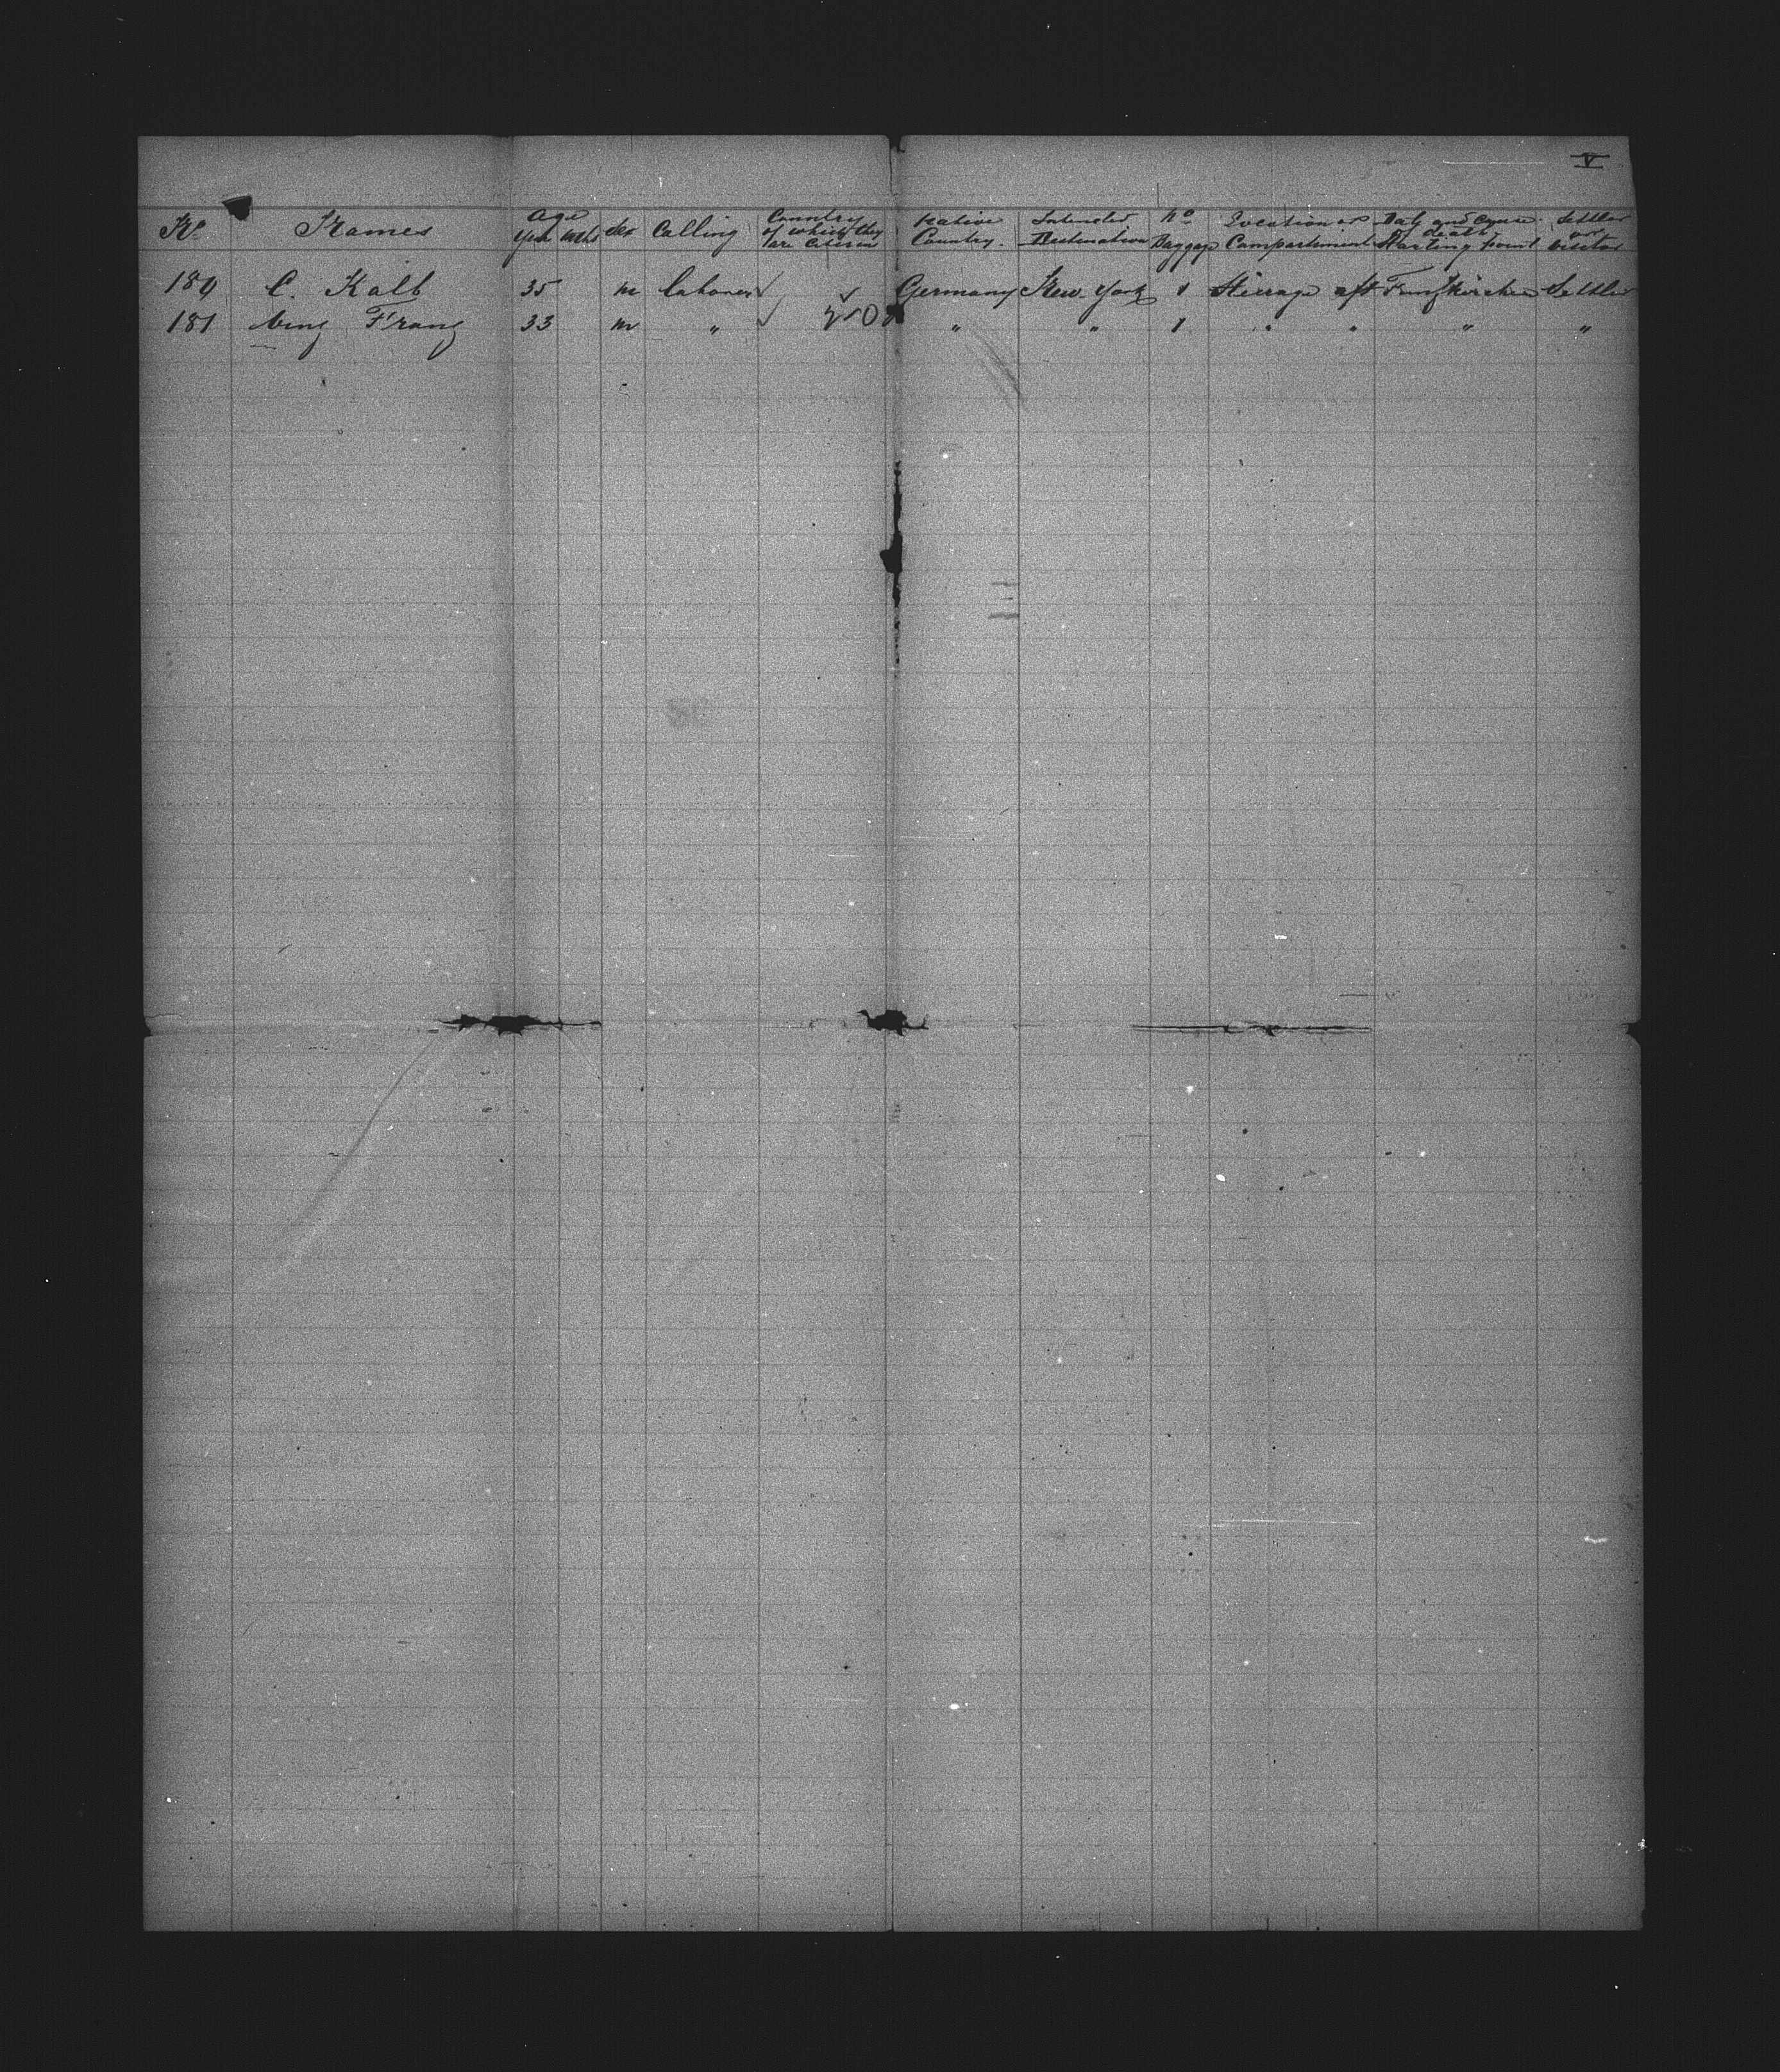 V
No Names Age Year Mths Sex Calling Country of which they are Citizens Native Country. Intended Destination No Baggage Location or Compartiment Date and Cause of death Starting point Settler or visitor
180 C. Kalb 35 m Labourer Germany New York 1 Steerage aft Funfkirchen Settler
181 Franz 33 m " " " 1 " " " "